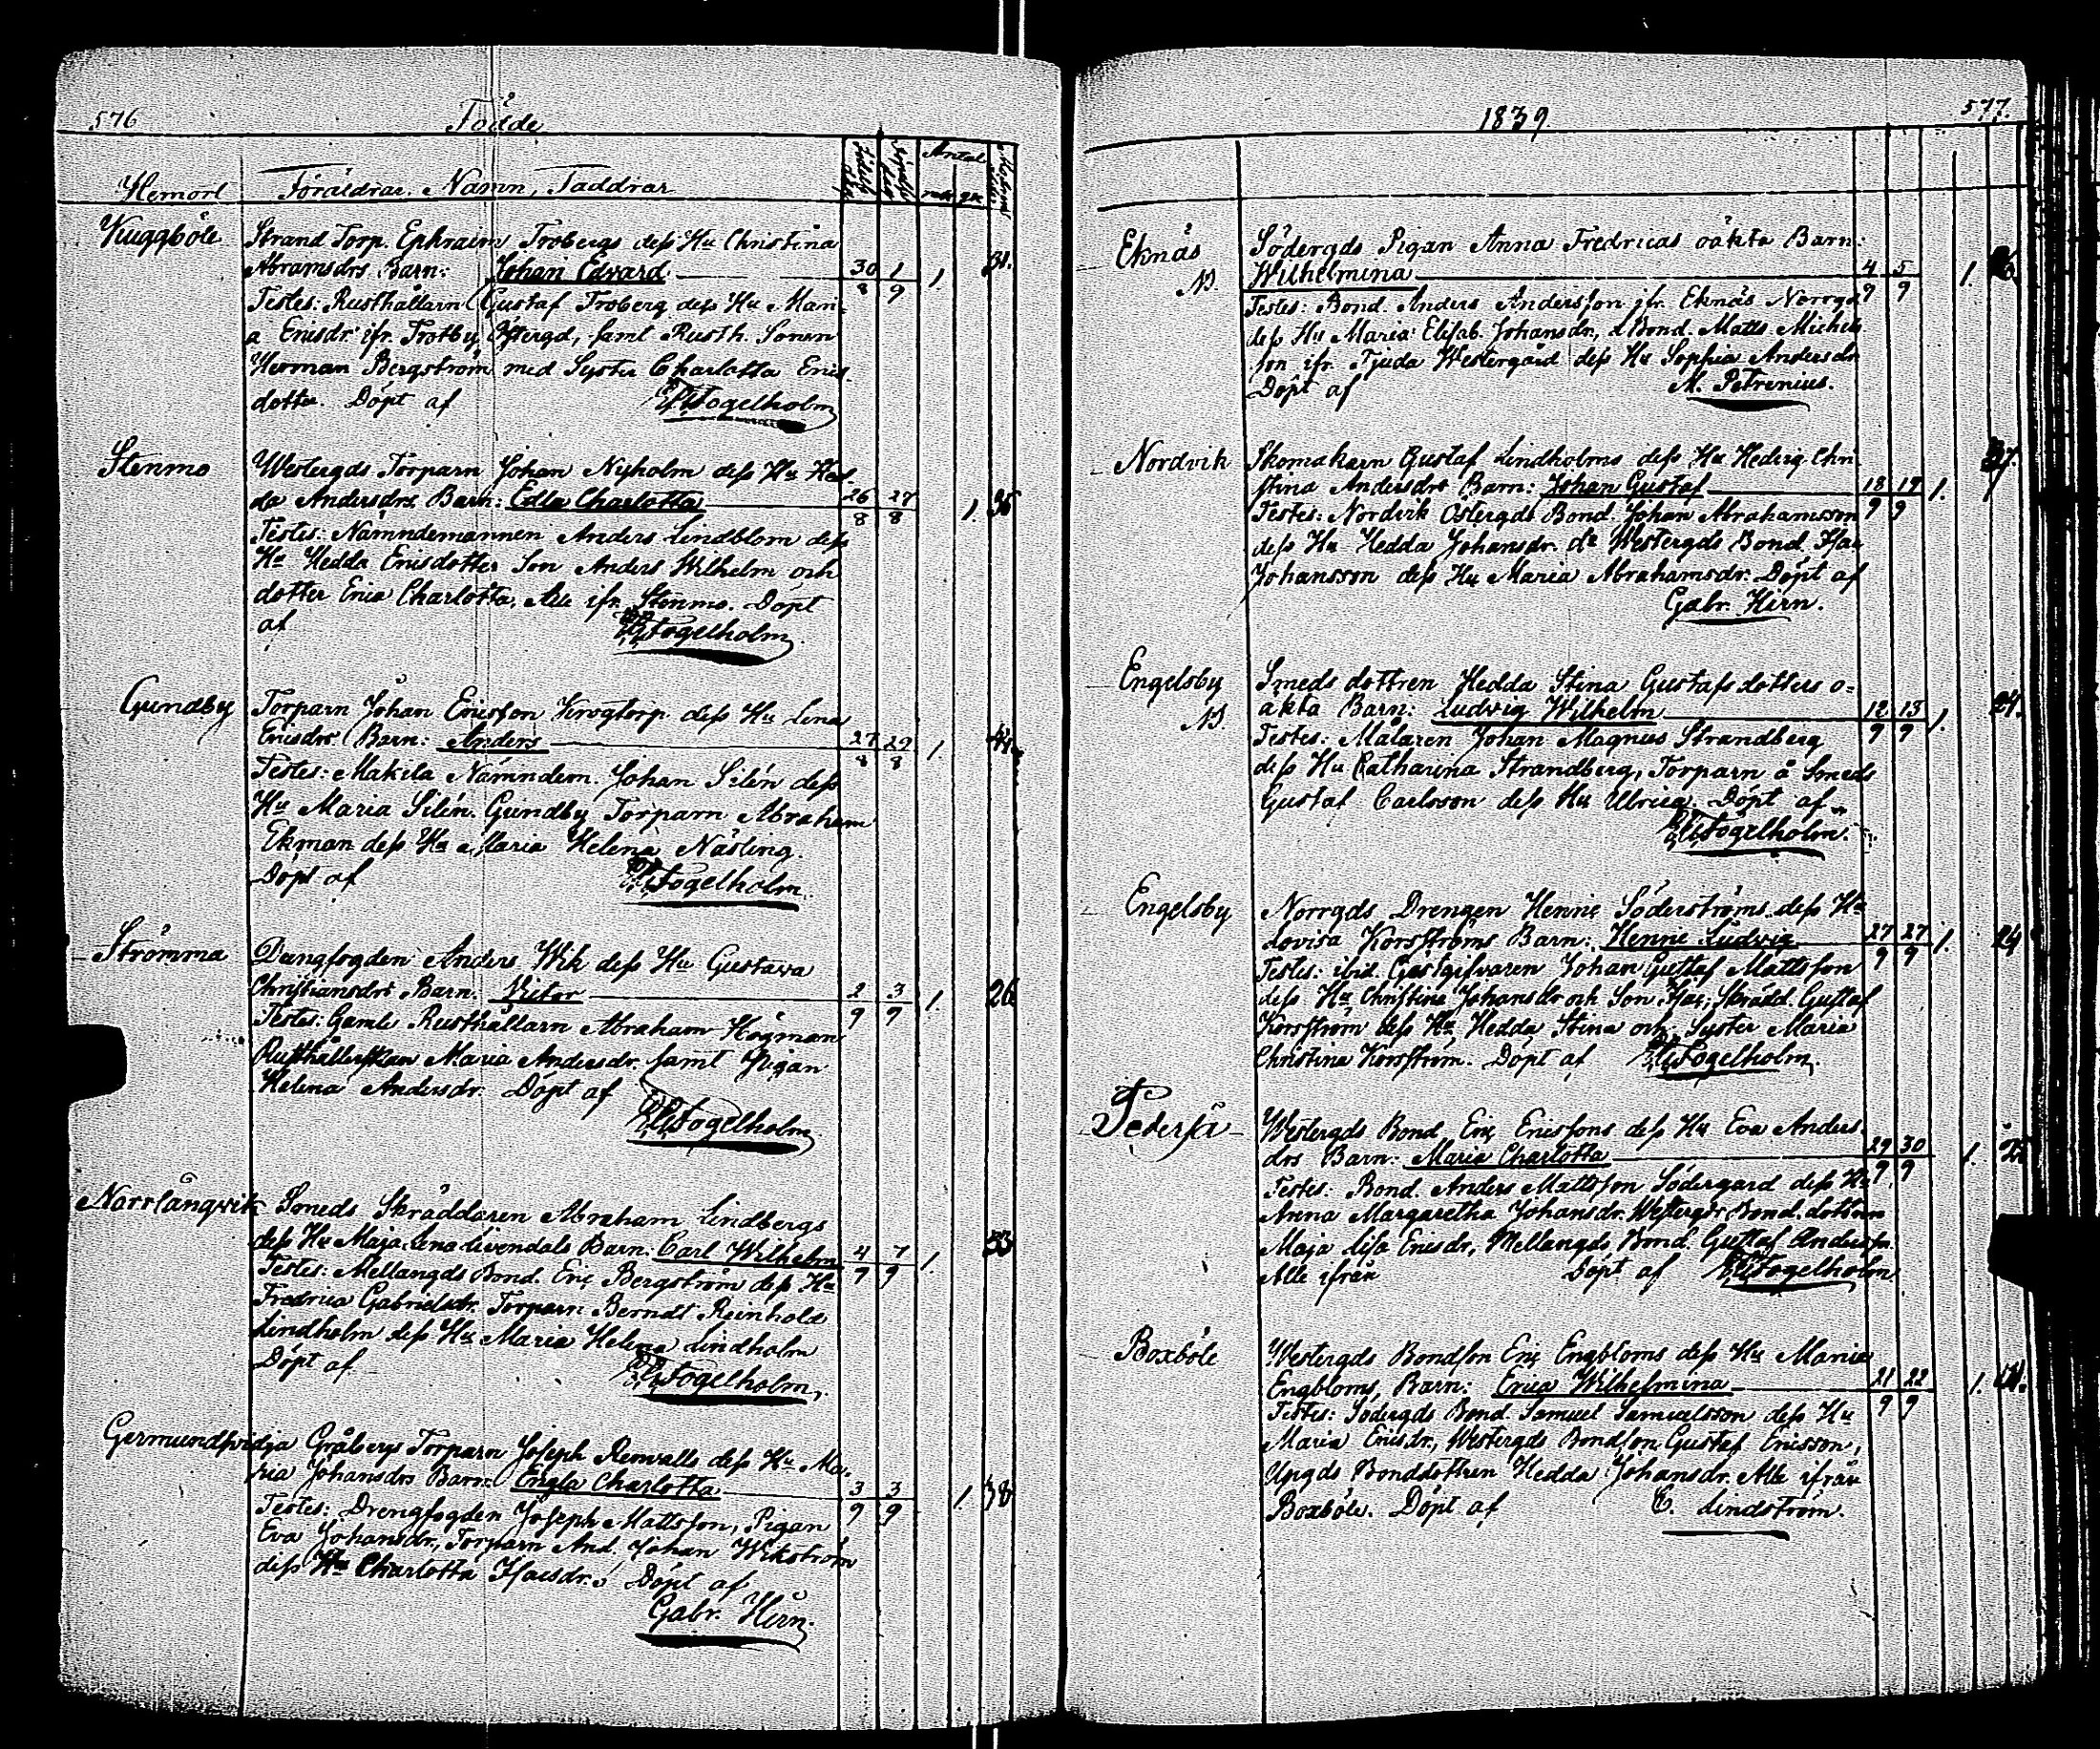 576
Födde
Hemort Föräldrar, Namn, Faddrar Födelse dag Antal
Kuggböle Strand Torp. Ephraim Trobergs deſs Hu Christina
Abramsdrs Barn: Johan Edvard 30/8 1/9 1. 31.
Testes: Rusthållarn Gustaf Troberg deſs Hu Mari-
a Ericsdr ifr. Trotby Östergd, samt Rusth. Sonen
Herman Bergström med Syster Charlotta Erics
dotter. Döpt af Fogelholm
Stenmo Westergds Torparn Johan Nyholm deſs Hu Hed
da Andersdrs Barn: Edla Charlotta 26/8 27/8 1. 36
Testes: Nämndemannen Anders Lindblom deſs
Hu Hedda Ericsdotter Son Anders Wilhelm och
dotter Erica Charlotta, Alle ifr. Stenmo. Döpt
af Fogelholm
Gundby Torparn Johan Ericſson Krogtorp deſs Hu Lena
Ericsdrs Barn: Anders 27/8 29/8 1.
Testes: Makila Nämndem. Johan Silén deſs
Hu Maria Silén. Gundby Torparn Abraham
Ekman deſs Hu Maria Helena Näsling.
Döpt af Fogelholm
Strömma Dangfogden Anders Wik deſs Hu Gustava
Christiansdrs Barn: Victor 2/9 3/9 1. 26
Testes: Gamle Rusthållarn Abraham Högman
Rusthållerskan Maria Andersdr. samt Pigan
Helena Andersdr. Döpt af
Fogelholm
Norrlångvik Smeds Skräddaren Abraham Lindbergs
deſs Hu Maja Lena Livendals Barn: Carl Wilhelm 4/9 7/9 1. 33
Testes: Mellangds Bond. Eric Bergström deſs Hu
Fredrica Gabrielsdr. Torparn Berndt Reinhold
Lindholm deſs Hu Maria Helena Lindholm
Döpt af Fogelholm
Germundsvidja Gråbergs Torparn Joseph Renvalls deſs Hu Ma-
ria Johansdrs Barn: Engla Charlotta 3/9 3/9 1. 38
Testes: Drengfogden Joseph Mattsſon, Pigan
Eva Johansdr., Torparn And. Johan Wikström
deſs Hu Charlotta Isacsdr. Döpt af
Gabr. Hirn.
1839. 577.
Eknäs Södergds Pigan Anna Fredricas oäkta Barn:
Wilhelmina 4/9 5/9 1.
Testes: Bond. Anders Andersſon ifr. Eknäs Norrgd
deſs Hu Maria Elisab. Johansdr, Bond. Matts Michels
son ifr. Tjuda Westergård deſs Hu Sophia Andersdr
Döpt af M. Petrenius.
Nordvik Skomakarn Gustaf Lindholms deſs Hu Hedvig Chri
stina Andersdrs Barn: Johan Gustaf 18/9 19/9 1. 37.
Testes: Nordvik Östergds Bond. Johan Abrahamsson
deſs Hu Hedda Johansdr. do Westergds Bond. Isac
Johansson deſs Hu Maria Abrahamsdr. Döpt af
Gabr. Hirn.
Engelsby Smeds dottren Hedda Stina Gustafsdotters o-
äkta Barn: Ludvig Wilhelm 12/9 13/9 1. 24.
Testes: Målaren Johan Magnus Strandberg
deſs Hu Catharina Strandberg, Torparn å Smeds
Gustaf Carlsson deſs Hu Ulrica. Döpt af
Fogelholm.
Engelsby Norrgds Drengen Henric Söderströms deſs Hu
Lovisa Korsströms Barn: Henric Ludvig 27/9 27/9 1. 24
Testes: ibid. Gästgifvaren Johan Gustaf Mattsſon
deſs Hu Christina Johansdr och Son Isac, Skrädd. Gustaf
Korsström deſs Hu Hedda Stina och Syster Maria
Christina Korsström. Döpt af Fogelholm
Pederså Westergds Bond. Eric Ericſsons deſs Hu Eva Anders
drs Barn: Maria Charlotta 29/9 30/9 1.
Testes: Bond. Anders Mattsſon Södergård deſs Hu
Anna Margaretha Johansdr. Westergds Bond. dottren
Maja Lisa Ericsdr, Mellangds Bond. Gustaf Andersſon.
Alle ifrån Döpt af Fogelholm
Boxböle Westergds Bondson Eric Engbloms deſs Hu Maria
Engbloms, Barn: Erica Wilhelmina 21/9 22/9 1.
Testes: Södergds Bond. Samuel Samuelsson deſs Hu
Maria Ericsdr., Westergds Bondson Gustaf Ericsson,
Upgds Bonddottren Hedda Johansdr. Alle ifrån
Boxböle. Döpt af C. Lindström.